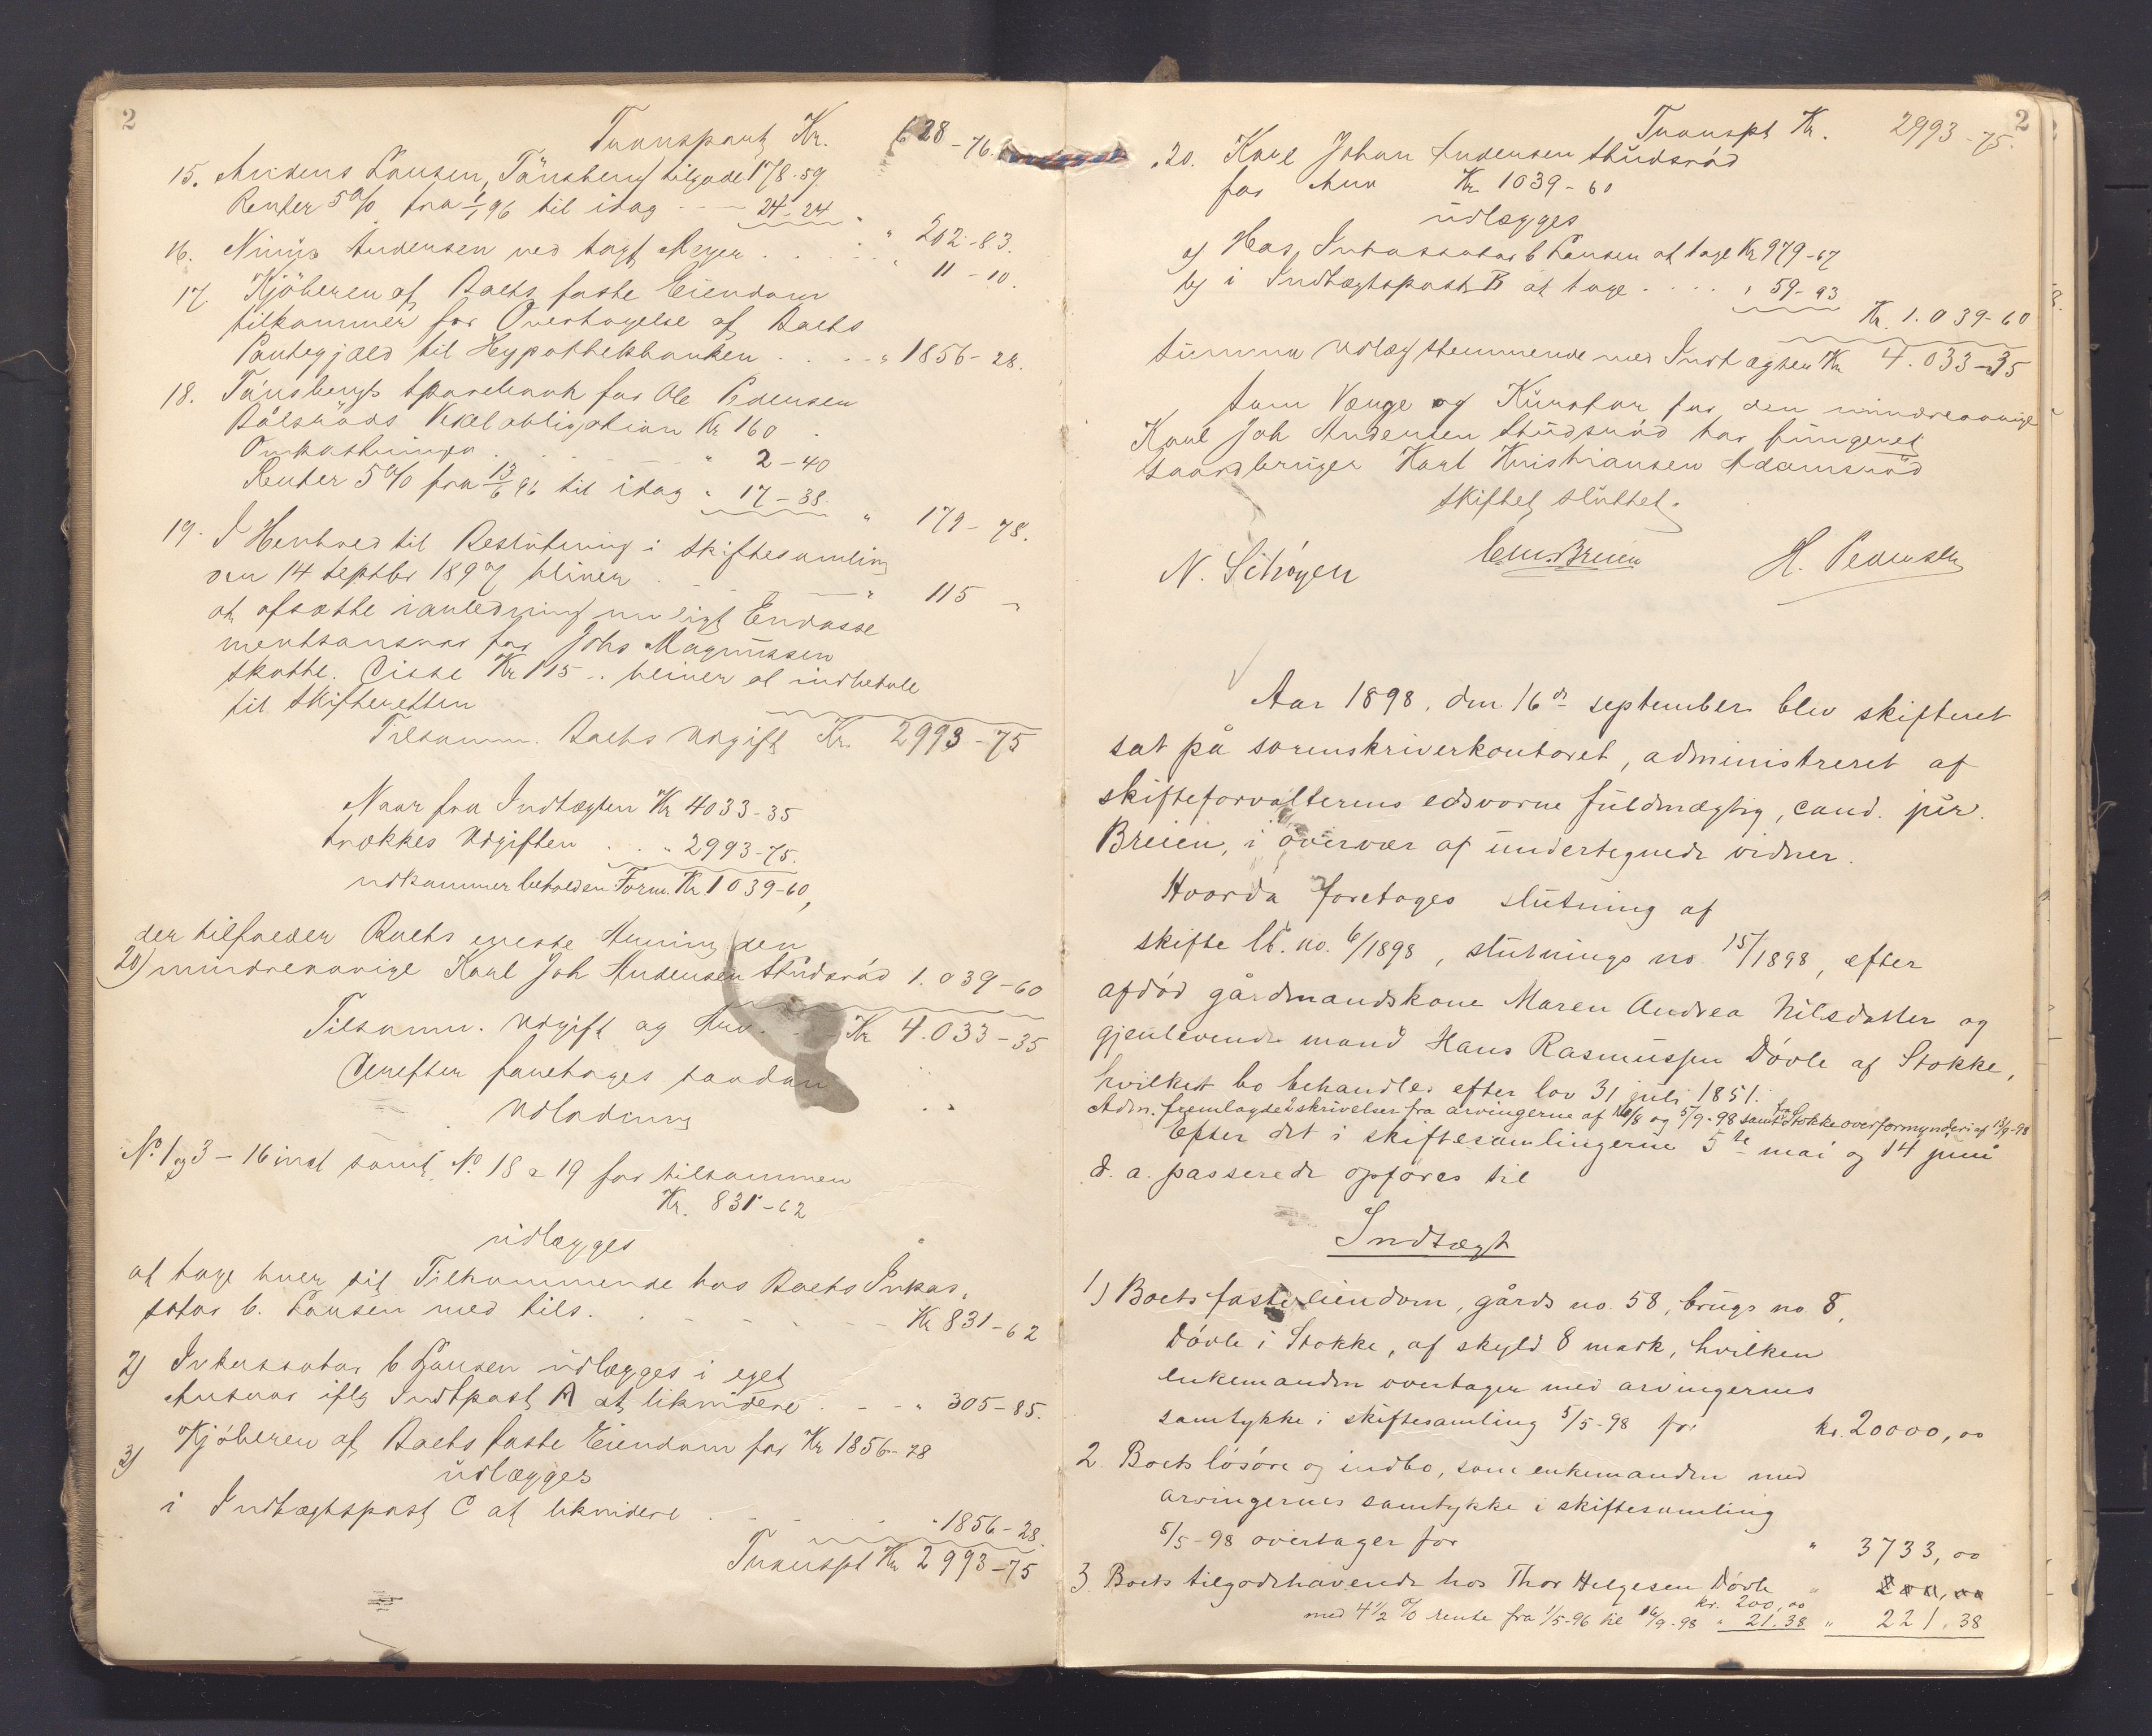 2
Transport Kr. 628-76.
15. Anders Hansen, Tönsberg tilgode 178.59.
Renter 5% fra 1/1 96 til idag - - - 24-24 " 202-83.
16. Ninus Andersen ved Meyer . . . . " 11-10.
17. Kjöberen af Boets faste Eiendom
tilkommer for Overtagelse af Boets
Pantegjæld til Hypothekbanken . . . . " 1856-28.
18. Tönsbergs Sparebank for Ole Pedersen
Vexelobligation Kr 160
Omkostninger . . . . " 2-40
Renter 5% fra 13/6 96 til idag " 17-38. " 179-78.
19. I Henhold til Beslutning i Skiftesamling
den 14 Septbr 1897 bliver . . . " 115 "
at afsætte i anledning muligt Endosse
mentsansvar for Johs Magnussen
Skatte. Disse Kr 115 " bliver at indbetale
til Skifteretten
Tilsamm. Boets Udgift Kr. 2993-75
Naar fra Indtægten Kr 4033-35
trækkes Udgiften . . " 2993-75.
udkommer beholden Form. Kr. 1039-60,
der tilfalder Boets eneste Arving den
20) mindreaarige Karl Joh Andersen Studsröd 1.039-60
Tilsamm. Udgift og Arv. . . Kr 4.033-35
Derefter foretages saadan
Udlodning
No. 1 og 3 - 16 incl samt No 18 & 19 for tilsammen
Kr. 831-62
udlægges
at tage hver sit Tilkommende hos Boets Inkas-
sator C. Hansen med tils. . . . . . . Kr 831-62
2) Inkassator C Hansen udlægges i eget
Ansvar iflg Indtpost A at likvidere . - - " 305-85.
3) Kjöberen af Boets faste Eiendom for Kr 1856-28
udlægges
i Indtægtspost C at likvidere . . . . " 1856-28.
Transpt Kr 2993-75
2
Transpt Kr. 2993-75.
20. Karl Johan Andersen Studsröd
for Arv Kr 1039-60
udlægges
a) Hos Inkassator C Hansen at tage Kr 979-67
b) i Indtægtspost B at tage . . . . " 59-93
Kr. 1.039-60
Summa Udlæg stemmende med Indtægten Kr 4.033-35
Som Værge og Kurator for den mindreaarige
Karl Joh Andersen Studsröd har fungeret
Gaardbruger Karl Kristiansen Adamsröd
Skiftet sluttet.
N. Schöyen Chr. Breien H. Pedersen
Aar 1898, den 16de september blev skifteret
sat på sorenskriverkontoret, administreret af
skifteforvalterens edsvorne fuldmægtig, cand. jur.
Breien, i overvær af undertegnede vidner.
Hvorda foretoges slutning af
skifte lb. no. 6/1898, slutnings no 15/1898, efter
afdöd gårdmandskone Maren Andrea Nilsdatter og
gjenlevende mand Hans Rasmussen Dövle af Stokke,
hvilket bo behandles efter lov 31 juli 1851.
Adm. fremlagde 2 skrivelser fra arvingerne af 16/8 og 5/9-98 samt fra Stokke overformynderi af 12/9-98
Efter det i skiftesamlingerne 5te mai og 14 juni
d. a. passerede opföres til
Indtægt
1) Boets faste eiendom, gårds no. 58, brugs no. 8,
Dövle i Stokke, af skyld 8 mark, hvilken
enkemanden overtager med arvingernes
samtykke i skiftesamling 5/5-98 for kr. 20000,00
2. Boets lösöre og indbo, som enkemanden med
arvingernes samtykke i skiftesamling
5/5-98 overtager for " 3733,00
3. Boets tilgodehavende hos Thor Helgesen Dövle " 200,00
kr. 200,00
med 4 1/2 % rente fra 1/5-96 til 16/9-98 " 21.38 " 221,38